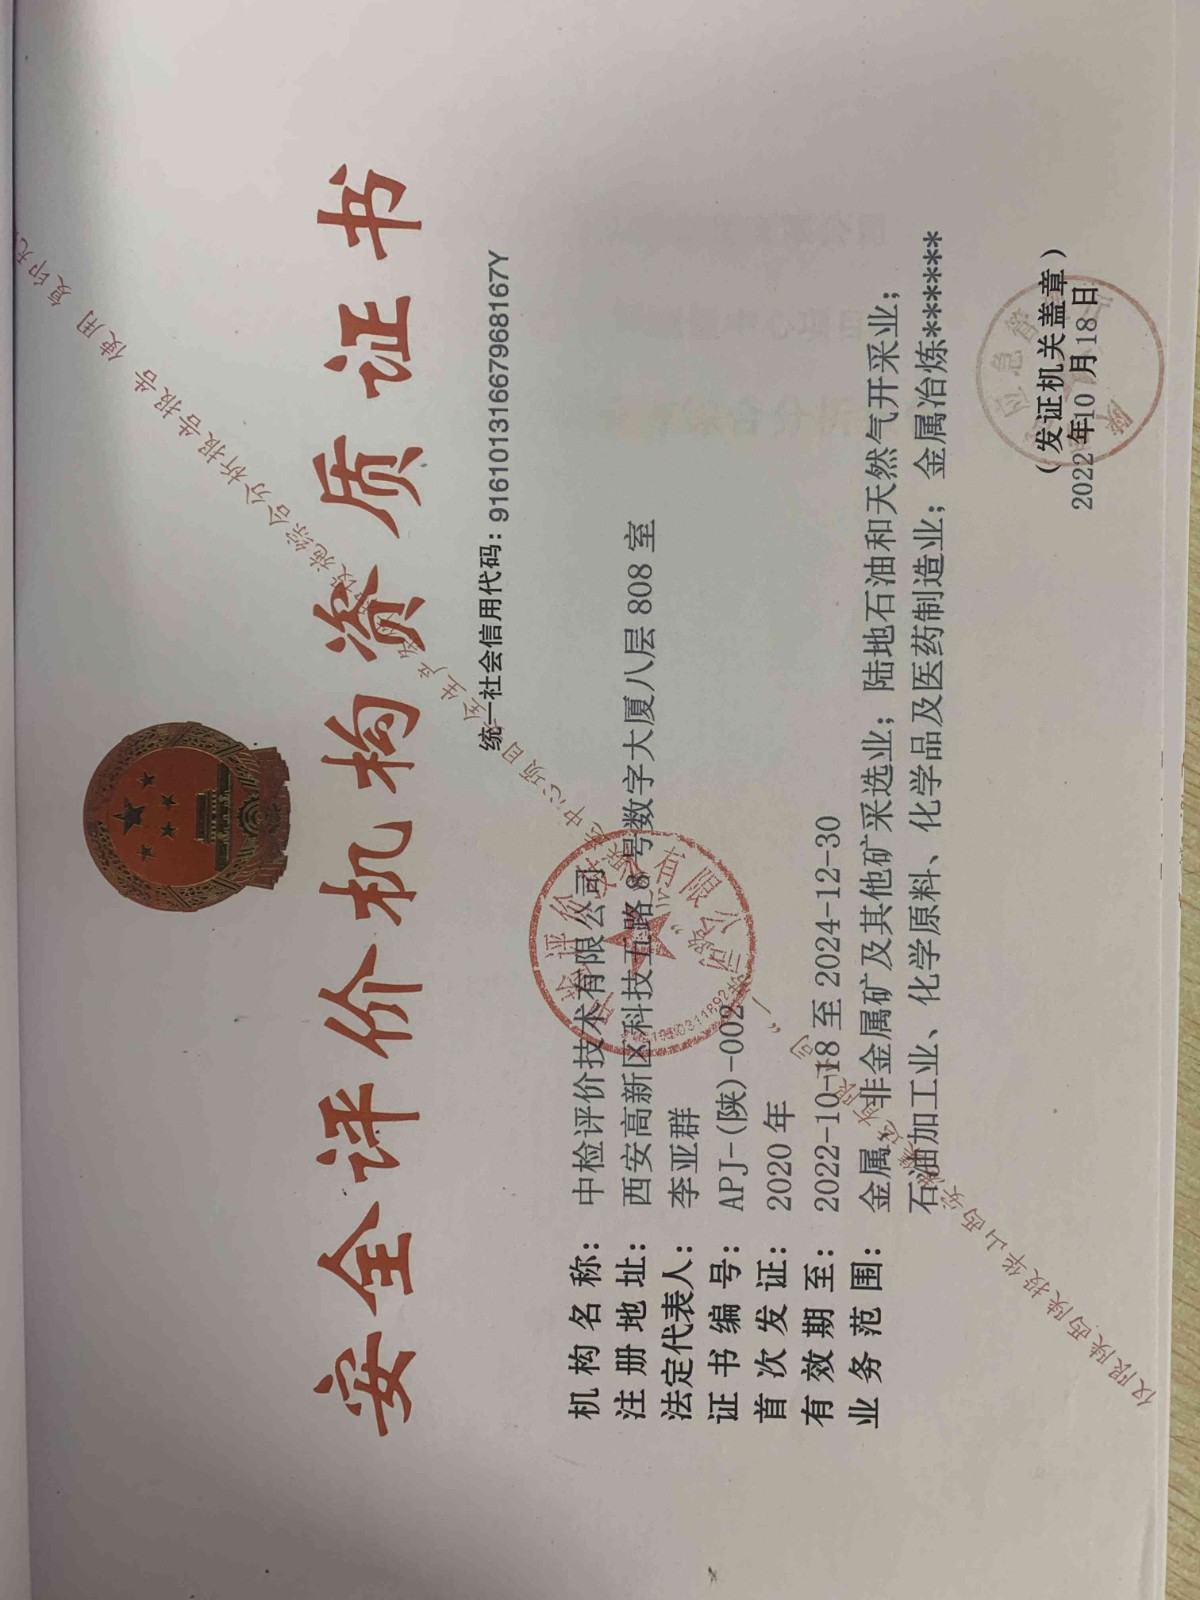 安全评价机构资质证书
统一社会信用代码：91610131667968167Y
机构名称：中检评价技术有限公司
注册地址：西安高新区科技五路8号数字大厦八层808室
法定代表人：李亚群
证书编号：APJ-(陕)-002
首次发证：2020年
有效期至：2022-10-18至2024-12-30
业务范围：金属、非金属矿及其他矿采选业；陆地石油和天然气开采业；
石油加工业、化学原料、化学品及医药制造业；金属冶炼******
（发证机关盖章）
2022年10月18日